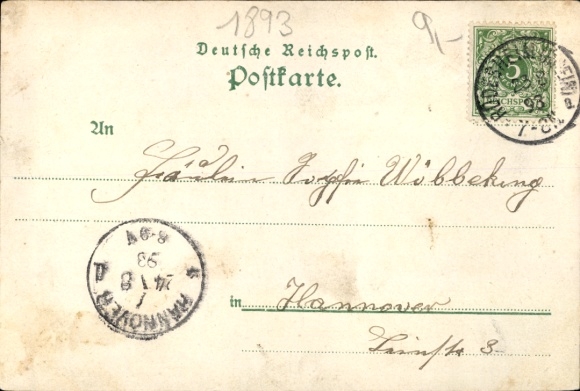 1893
9,-
Deutsche Reichspost.
Postkarte.
5
REICHSPOST
RÜDESHEIM (RHEIN)
93
7-8N
An
Fräulein Sophie Wöbbeking
HANNOVER
93
8-9V
in Hannover
Leinstr 3.